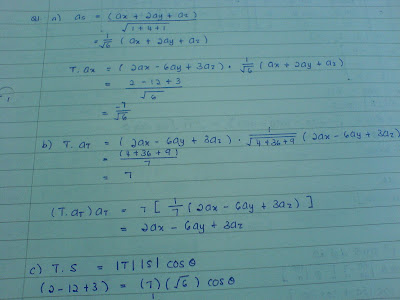 Q1 a) as = (ax + 2ay + az)
√1+4+1
= 1/√6 (ax + 2ay + az)
T.ax = (2ax - 6ay + 3az) . 1/√6 (ax + 2ay + az)
= 2 - 12 + 3
√6
= -7/√6
b) T.aT = (2ax - 6ay + 3az) . 1/√4+36+9 (2ax - 6ay + 3az)
= (4+36+9)/7
= 7
(T.aT)aT = 7 [ 1/7 (2ax - 6ay + 3az) ]
= 2ax - 6ay + 3az
c) T.S = |T||S| cosθ
(2-12+3) = (7)(√6) cosθ